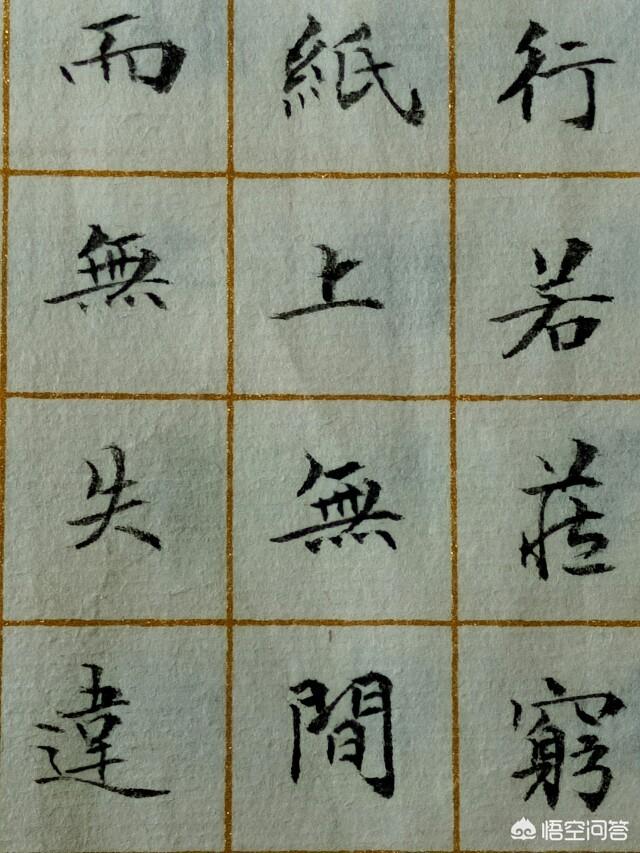 行若莊窮
紙上無間
而無失違
悟空问答